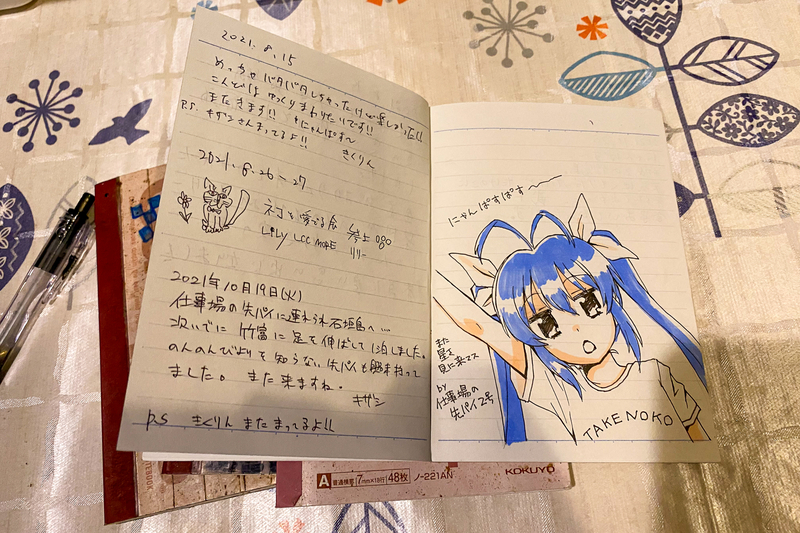 2021. 8. 15
めっちゃバタバタしちゃったけど楽しかった!!
こんどは ゆっくりまわりたいです!!
またきます!! にゃんぱすー
P.S. キザシさんまってるよ!!
きくりん
2021. 8. 26-27
ネコを愛でる会 参上
リリー
2021年10月19日(火)
仕事場の先パイに連れられ石垣島へ…
次いでに 竹富に足を伸ばして1泊しました。
のんのんびよりを知らない先パイも興味持って
ました。 また来ますね。
キザシ
P.S きくりん またまってるよ!!
にゃんぱすぱすー
また
星を
見に来マス
by
仕事場の
先パイ2号
TAKENOKO
NOTEBOOK
A 普通横罫 7mm×18行 48枚 ノ-221AN
KOKUYO